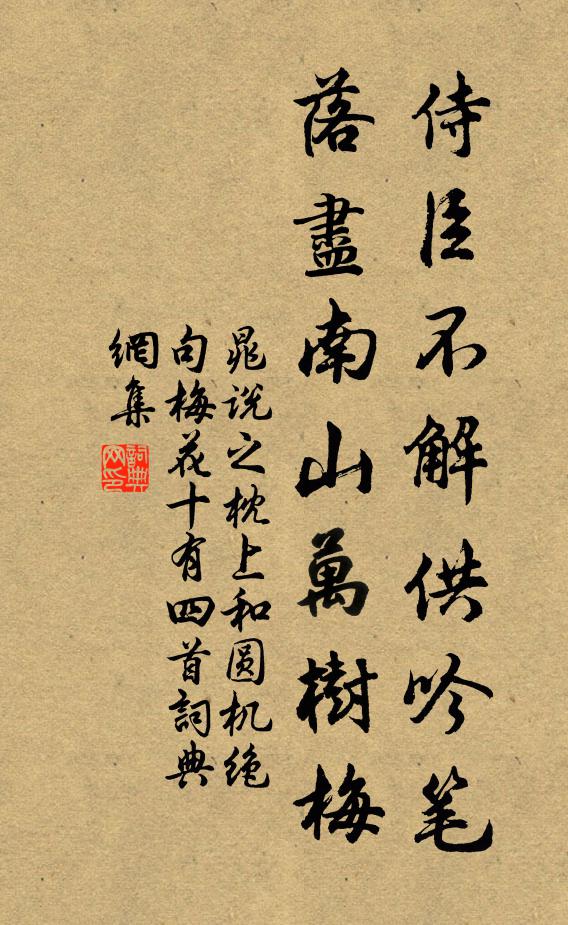 侍臣不解供吟笔
落盡南山萬樹梅
晁说之枕上和圆机绝
句梅花十有四首詞典
網集
詞典
网印